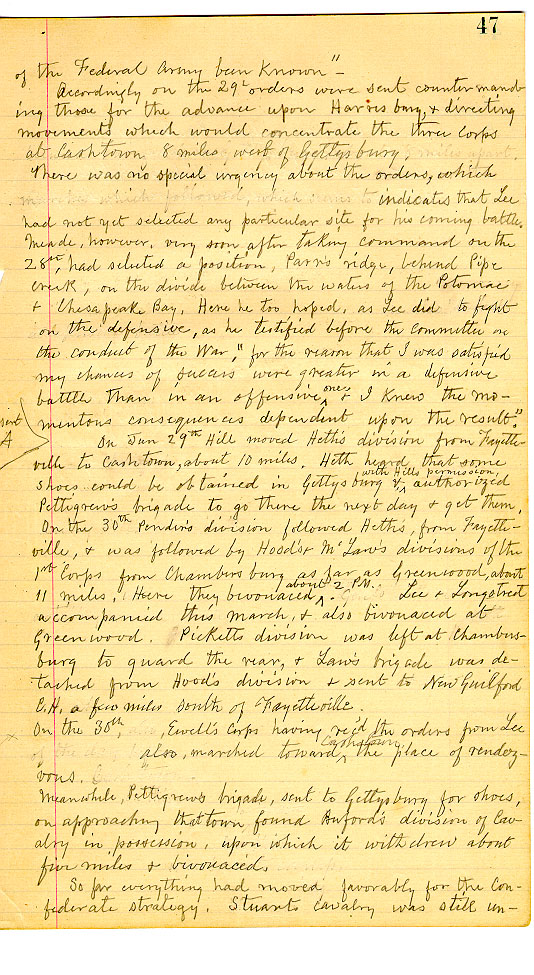 47
of the Federal Army been known"—
Accordingly on the 29th orders were sent countermand-
ing those for the advance upon Harrisburg, & directing
movements which would concentrate the three corps
at Cashtown 8 miles west of Gettysburg.
There was no special urgency about the orders, which
indicates that Lee
had not yet selected any particular site for his coming battle.
Meade, however, very soon after taking command on the
28th, had selected a position, Parr's ridge, behind Pipe
creek, on the divide between the waters of the Potomac
& Chesapeak Bay. Here he too hoped, as Lee did to fight
on the defensive, as he testified before the Committee on
the conduct of the War, "for the reason that I was satisfied
my chances of success were greater in a defensive
battle than in an offensive one & I knew the mo-
mentous consequences dependent upon the result."
A
On Jun 29th Hill moved Heth's division from Fayette-
ville to Cashtown, about 10 miles. Heth heard that some
shoes could be obtained in Gettysburg & with Hill's permission authorized
Pettigrew's brigade to go there the next day & get them.
On the 30th Pender's division followed Heth's, from Fayette-
ville, & was followed by Hood's & McLaws divisions of the
1st Corps from Chambersburg as far as Greenwood, about
11 miles. Here they bivouaced about 2 P.M. Lee & Longstreet
accompanied this march, & also bivouaced at
Greenwood. Picketts division was left at Chambers-
burg to guard the rear, & Law's brigade was de-
tached from Hood's division & sent to New Guilford
C.H. a few miles south of Fayetteville.
On the 30th, Ewell's Corps having rec'd the orders from Lee
also, marched toward Cashtown the place of rendez-
vous.
Meanwhile, Pettigrew's brigade, sent to Gettysburg for shoes,
on approaching that town found Buford's division of Cav-
alry in possession, upon which it withdrew about
five miles & bivouaced.
So far everything had moved favorably for the Con-
federate strategy. Stuart's cavalry was still un-